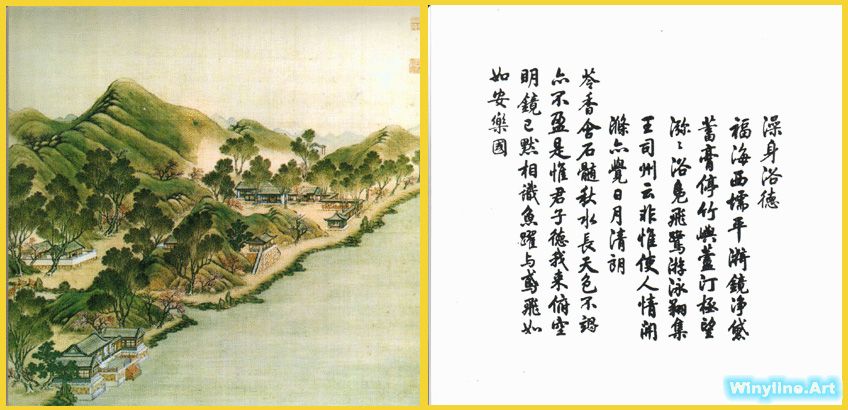 澡身浴德
福海西壖平漪鏡净黛
蓄膏停竹嶼蘆汀極望
瀰〻浴鳧飛鷺游泳翔集
王司州云非惟使人情開
滌亦覺日月清朗
苓香含石髓秋水長天色不竭
亦不盈是惟君子德我來俯空
明鏡已默相識魚躍与鳶飛如
如安樂國
Winyline.Art